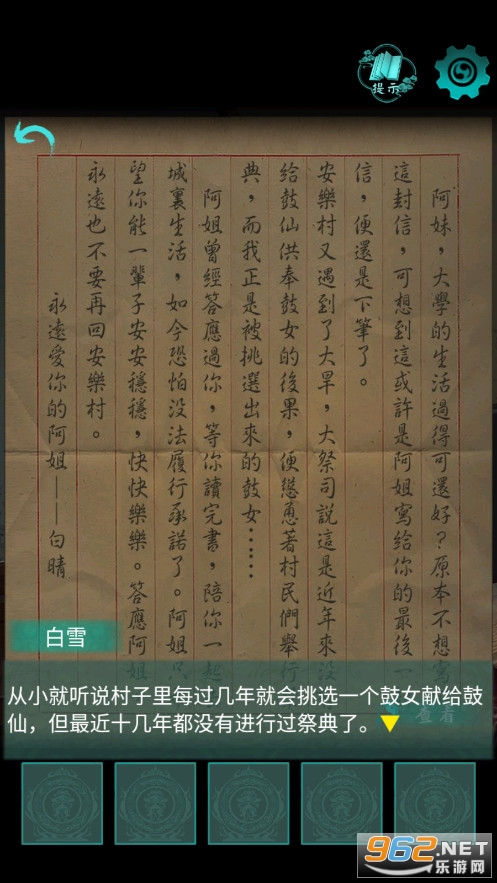 提示
阿妹，大學的生活過得可還好？原本不想寫
這封信，可想到這或許是阿姐寫給你的最後一
信，便還是下筆了。
安樂村又遇到了大旱，大祭司說這是近年來没
給鼓仙供奉鼓女的後果，便慫恿著村民們舉行
典，而我正是被挑選出來的鼓女……
阿姐曾經答應過你，等你讀完書，陪你一起
城裏生活，如今恐怕没法履行承諾了。阿姐只
望你能一輩子安安穩穩，快快樂樂。答應阿姐
永遠也不要再回安樂村。
永遠愛你的阿姐——白晴
白雪
从小就听说村子里每过几年就会挑选一个鼓女献给鼓
仙，但最近十几年都没有进行过祭典了。
查看
962.NET
乐游网